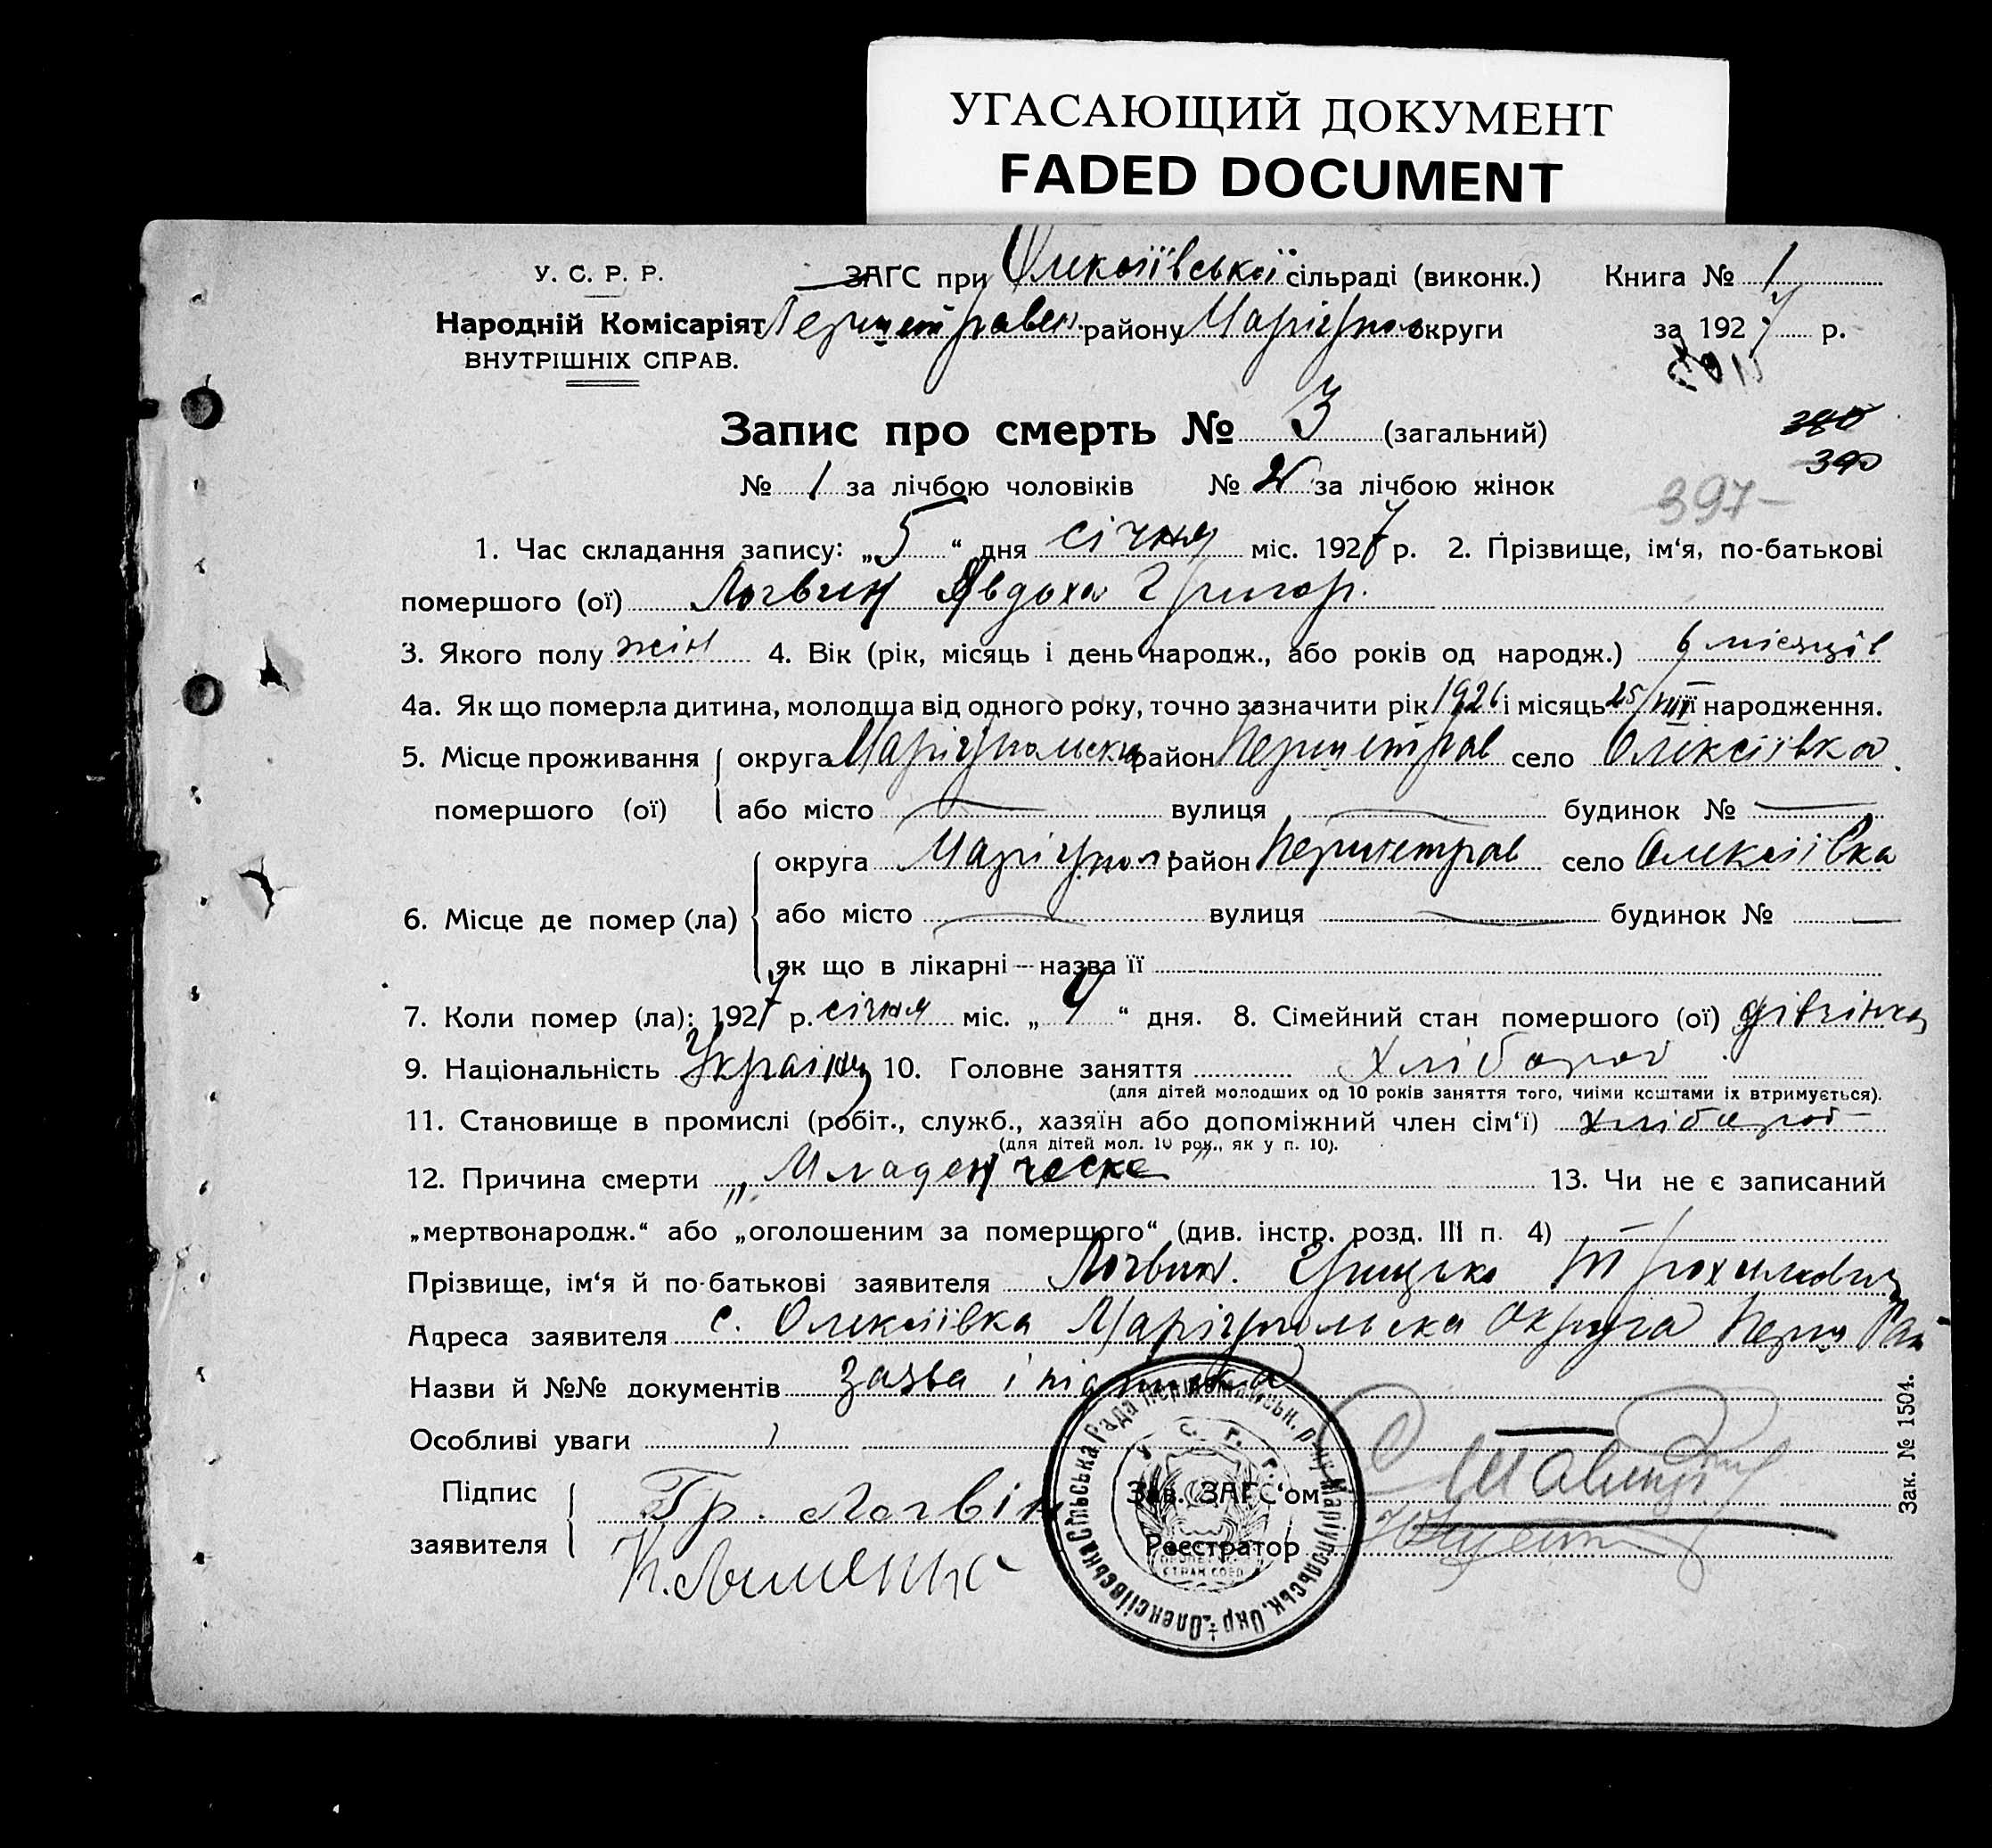 УГАСАЮЩИЙ ДОКУМЕНТ
FADED DOCUMENT
У. С. Р. Р. ЗАГС при Олексіївської сільраді (виконк.) Книга № 1
Народній Комісаріят району Маріупол округи за 1927 р.
ВНУТРІШНІХ СПРАВ.
Запис про смерть № 3 (загальний)
380
390
№ 1 за лічбою чоловіків № 2 за лічбою жінок
397-
1. Час складання запису: „5“ дня січня міс. 1927 р. 2. Прізвище, ім‘я, по-батькові
помершого (ої) Логвин Явдоха Григор.
3. Якого полу жін 4. Вік (рік, місяць і день народж., або років од народж.) 6 місяців
4а. Як що померла дитина, молодша від одного року, точно зазначити рік 1926 і місяць 25/VIII її народження.
5. Місце проживання округа Маріупольска район Першетрав село Олексіївка
помершого (ої) або місто — вулиця — будинок № —
округа Маріупол район Першетрав село Олексіївка
6. Місце де помер (ла) або місто — вулиця — будинок № —
як що в лікарні — назва її
7. Коли помер (ла): 1927 р. січня міс. „4“ дня. 8. Сімейний стан помершого (ої) дівчінка
9. Національність 10. Головне заняття хлібороб
(для дітей молодших од 10 років заняття того, чиїми коштами їх втримується).
11. Становище в промислі (робіт., служб., хазяїн або допоміжний член сім‘ї) хлібороб
(для дітей мол. 10 рок., як у п. 10).
12. Причина смерти „Младенческе“ 13. Чи не є записаний
„мертвонародж.“ або „оголошеним за помершого“ (див. інстр. розд. III п. 4) —
Прізвище, ім‘я й по-батькові заявителя Логвин. Грицько Трохимович
Адреса заявителя с. Олексіївка Маріупольска Округа Перш Рай
Назви й №№ документів Заява і підписка
Особливі уваги
Підпис Гр. Логвін Зав. ЗАГС‘ом
заявителя Реєстратор
Олексіївська Сільська Рада Маріупольськ. Окр.
Зак. № 1504.